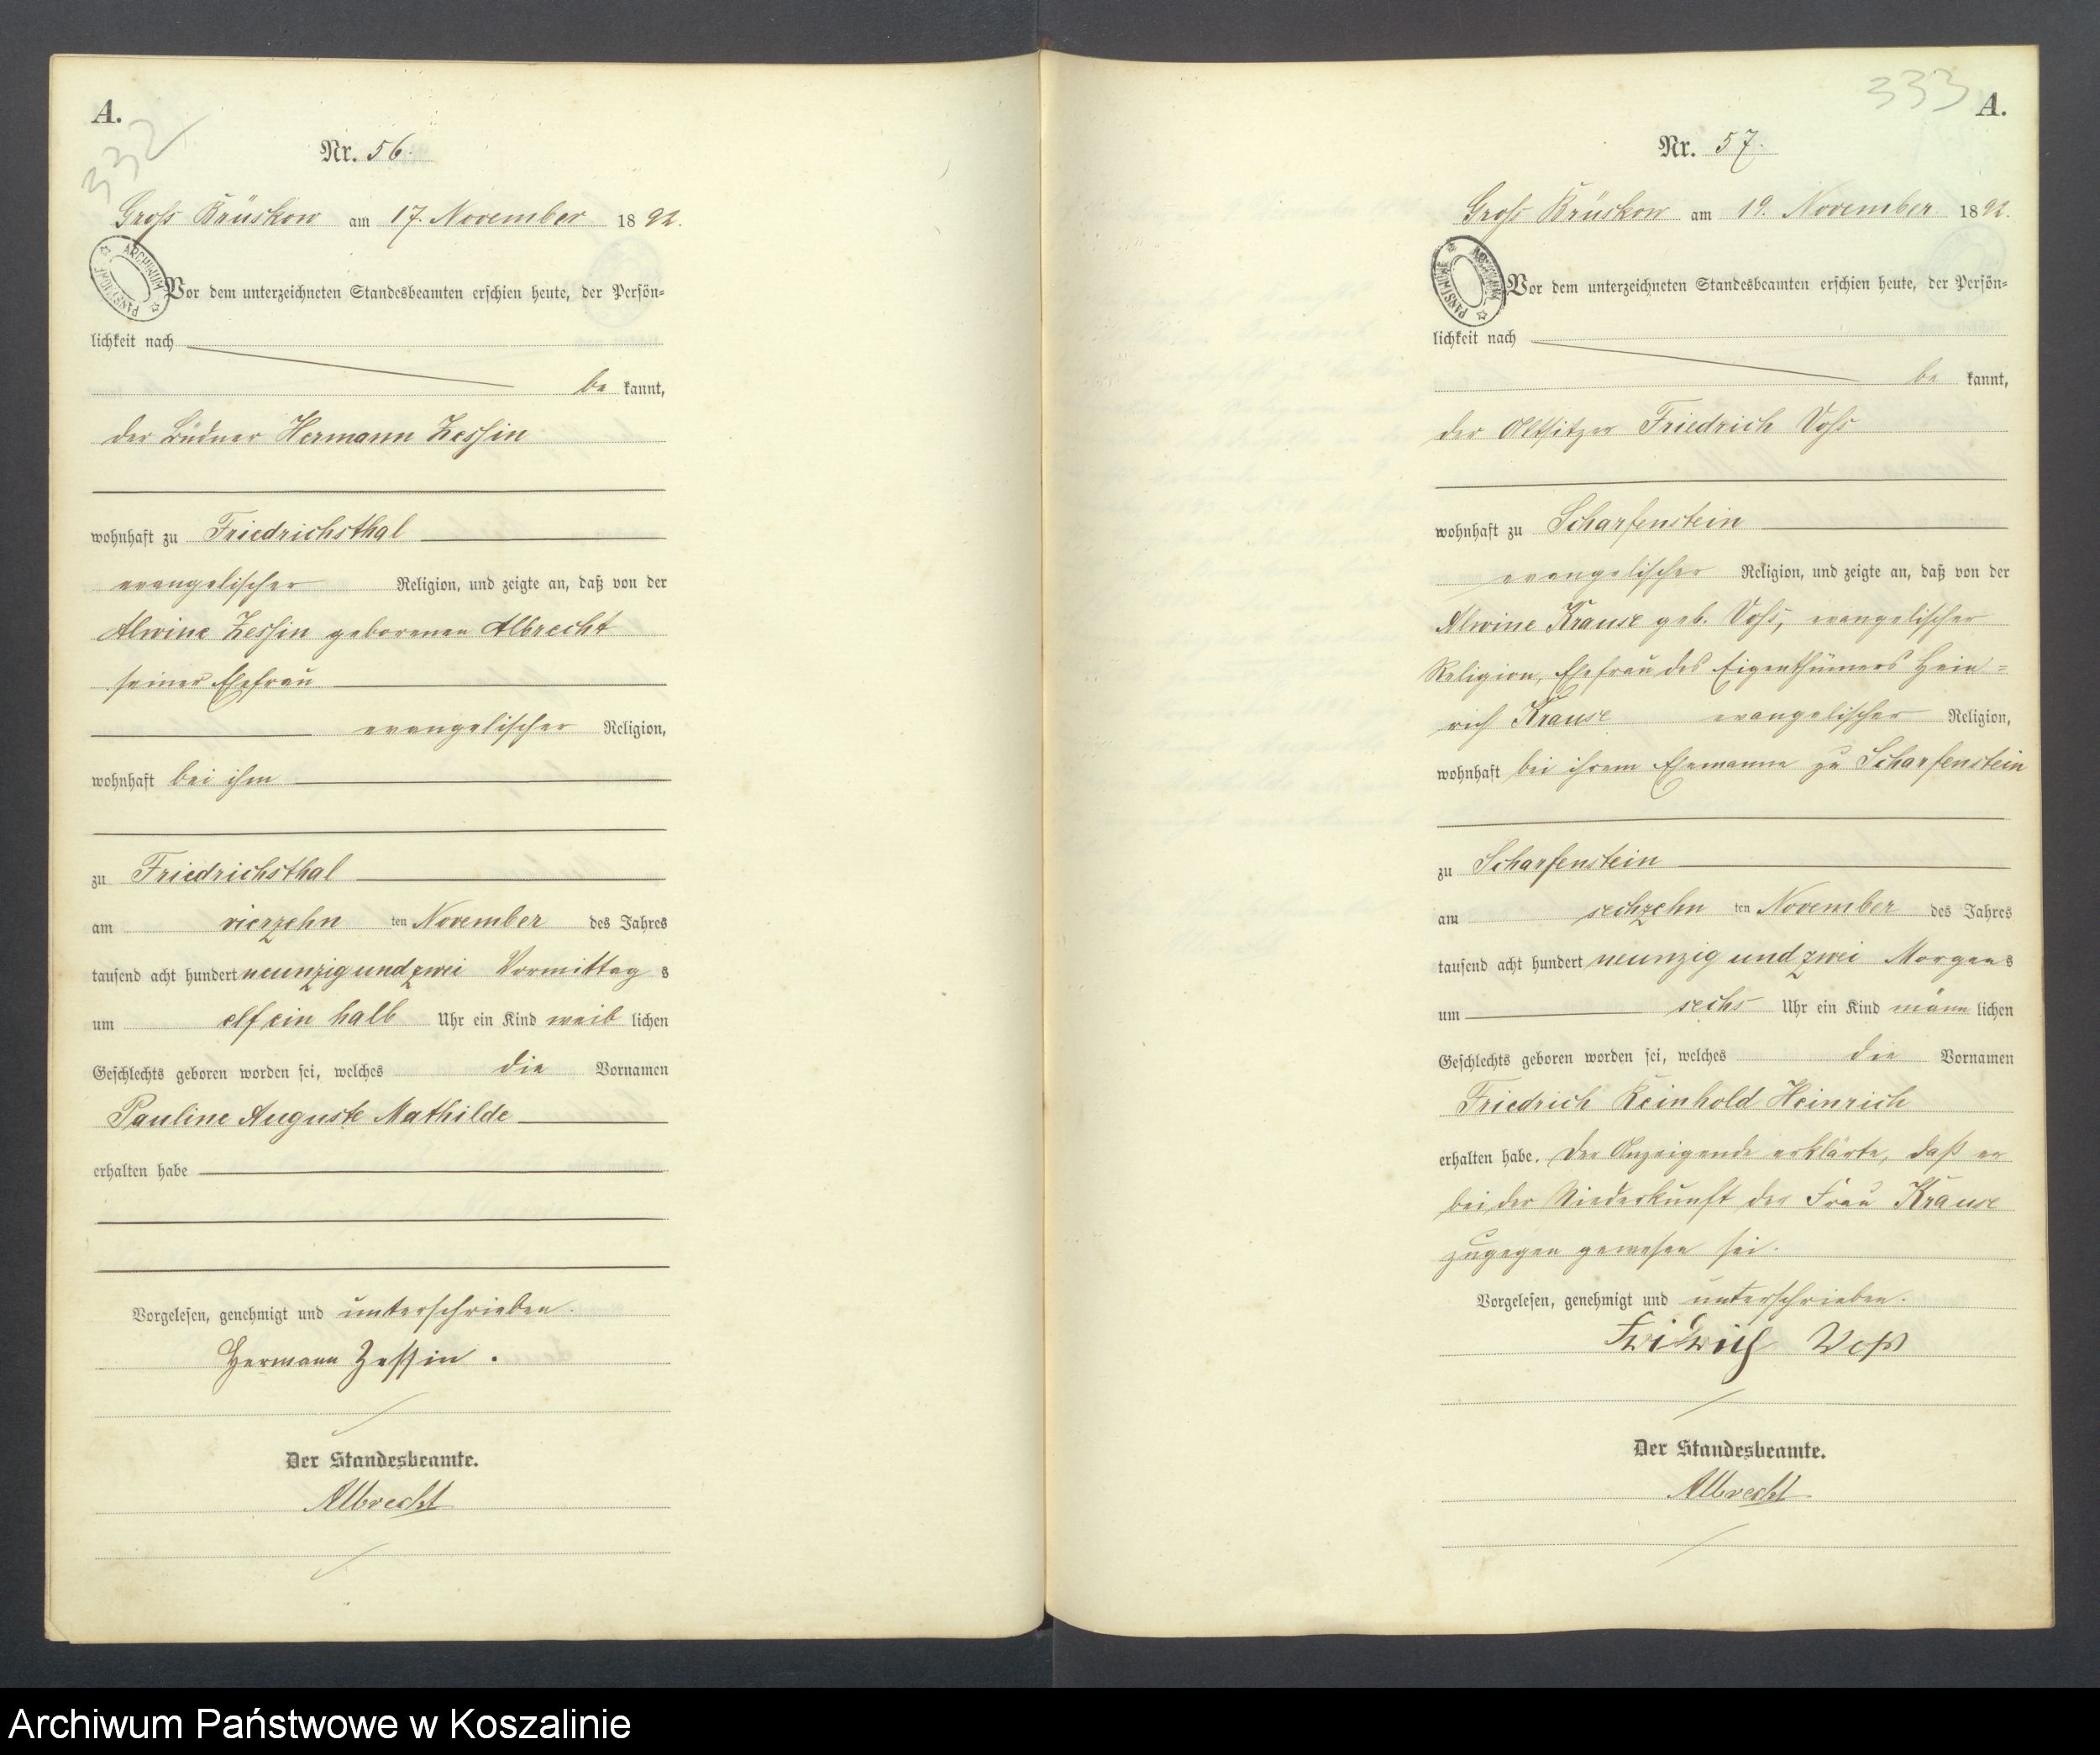 A.
332
Nr. 56.
Gross Brüskow am 17. November 1892.
ARCHIWUM PAŃSTWOWE
Vor dem unterzeichneten Standesbeamten erschien heute, der Persön-
lichkeit nach
be kannt,
der Büdner Hermann Zessin
wohnhaft zu Friedrichsthal
evangelischer Religion, und zeigte an, daß von der
Alwine Zessin geborenen Albrecht
seiner Ehefrau
evangelischer Religion,
wohnhaft bei ihm
zu Friedrichsthal
am vierzehn ten November des Jahres
tausend acht hundert neunzig und zwei Vormittag s
um elf ein halb Uhr ein Kind weib lichen
Geschlechts geboren worden sei, welches die Vornamen
Pauline Auguste Mathilde
erhalten habe
Vorgelesen, genehmigt und unterschrieben.
Hermann Zessin.
Der Standesbeamte.
Albrecht
333
A.
Nr. 57.
Gross Brüskow am 19. November 1892.
ARCHIWUM PAŃSTWOWE
Vor dem unterzeichneten Standesbeamten erschien heute, der Persön-
lichkeit nach
be kannt,
der Altsitzer Friedrich Voss
wohnhaft zu Scharfenstein
evangelischer Religion, und zeigte an, daß von der
Alwine Krause geb. Voss, evangelischer
Religion, Ehefrau des Eigenthümers Hein=
rich Krause evangelischer Religion,
wohnhaft bei ihrem Ehemanne zu Scharfenstein
zu Scharfenstein
am sechzehn ten November des Jahres
tausend acht hundert neunzig und zwei Morgens
um sechs Uhr ein Kind männ lichen
Geschlechts geboren worden sei, welches die Vornamen
Friedrich Reinhold Heinrich
erhalten habe. Der Anzeigende erklärte, daß er
bei der Niederkunft der Frau Krause
zugegen gewesen sei.
Vorgelesen, genehmigt und unterschrieben.
Fridrich Voß
Der Standesbeamte.
Albrecht
Archiwum Państwowe w Koszalinie